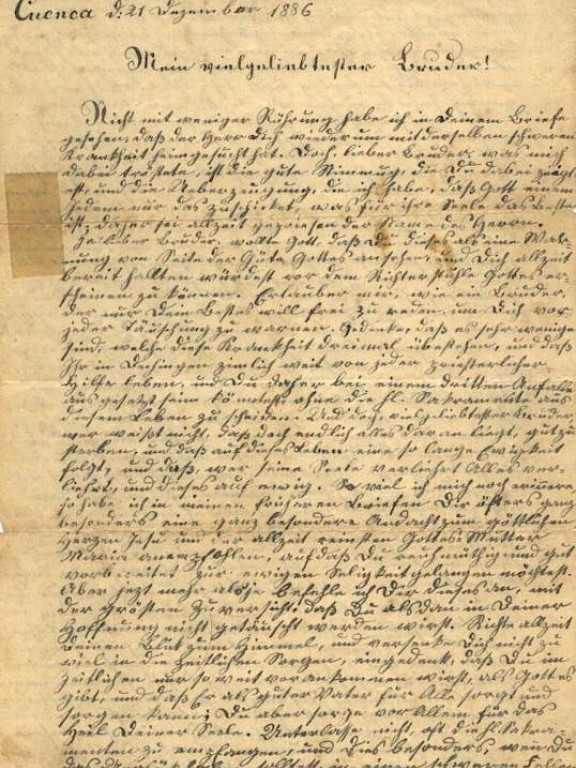 Cuenca d: 21 Dezember 1886
Mein vielgeliebtester Bruder!
Nicht mit weniger Rührung habe ich in Deinem Briefe
gesehen, daß der Herr Dich wiederum mit derselben schweren
Krankheit heimgesucht hat. Doch, lieber Bruder, was mich
dabei tröstete, ist die gute Stimmung, die Du dabei zeig
est, und die Ueberzeugung, die ich habe, daß Gott einem
Jeden nur das zuschicket, was für ihre Seele das Beste
ist; daher sei allzeit gepriesen der Name des Herrn.
Geliebter Bruder, wollte Gott, daß Du dieses als eine War-
nung von Seite der Güte Gottes ansehen, und Dich allzeit
bereit halten würdest vor dem Richterstuhle Gottes er-
scheinen zu können. Erlaube mir, wie ein Bruder,
der nur Dein Bestes will frei zu reden, um Dich vor
jeder Täuschung zu warnen. Gedenke, daß es sehr wenige
sind, welche diese Krankheit dreimal überstehen, und daß
Ihr in ziemlich weit von jeder priesterlichen
Hilfe leben, und Du daher bei einem dritten Anfalle
ausgesetzt sein könntest, ohne die hl. Sakramente aus
diesem Leben zu scheiden. Und Du, vielgeliebtester Bruder,
wer weißt nicht, daß doch endlich alles daran liegt, gut zu
sterben, und daß auf dieses Leben eine so lange Ewigkeit
folgt, und daß, wer seine Seele verliehrt Alles ver-
liehrt, und dieses auf ewig. So viel ich mich noch erinnere
so habe ich in meinen früheren Briefen Dir öfters ganz
besonders eine ganz besondere Andacht zum göttlichen
Herzen Jesu und der allzeit reinsten Gottes-Mutter
Maria anempfohlen, auf daß Du reichmüthig und gut
vorbereitet zur ewigen Seligkeit gelangen möchtest.
Aber jetzt mehr als je befehle ich Dir dieses an, mit
der grösten Zuversicht, daß Du alsdan in Deiner
Hoffnung nicht getäuscht werden wirst. Richte allzeit
Deinen Blick zum Himmel, und versenke Dich nicht zu
viel in die zeitlichen Sorgen, eingedenk, daß Du im
zeitlichen nur so weit vorankommen wirst, als Gott es
gibt, und daß Er als guter Vater für Alle sorgt und
sorgen kann; Du aber sorge vor Allem für das
Heil Deiner Seele. Unterlasse nicht, oft die hl. Sakra-
menten zu empfangen, und dies besonders, wen Du